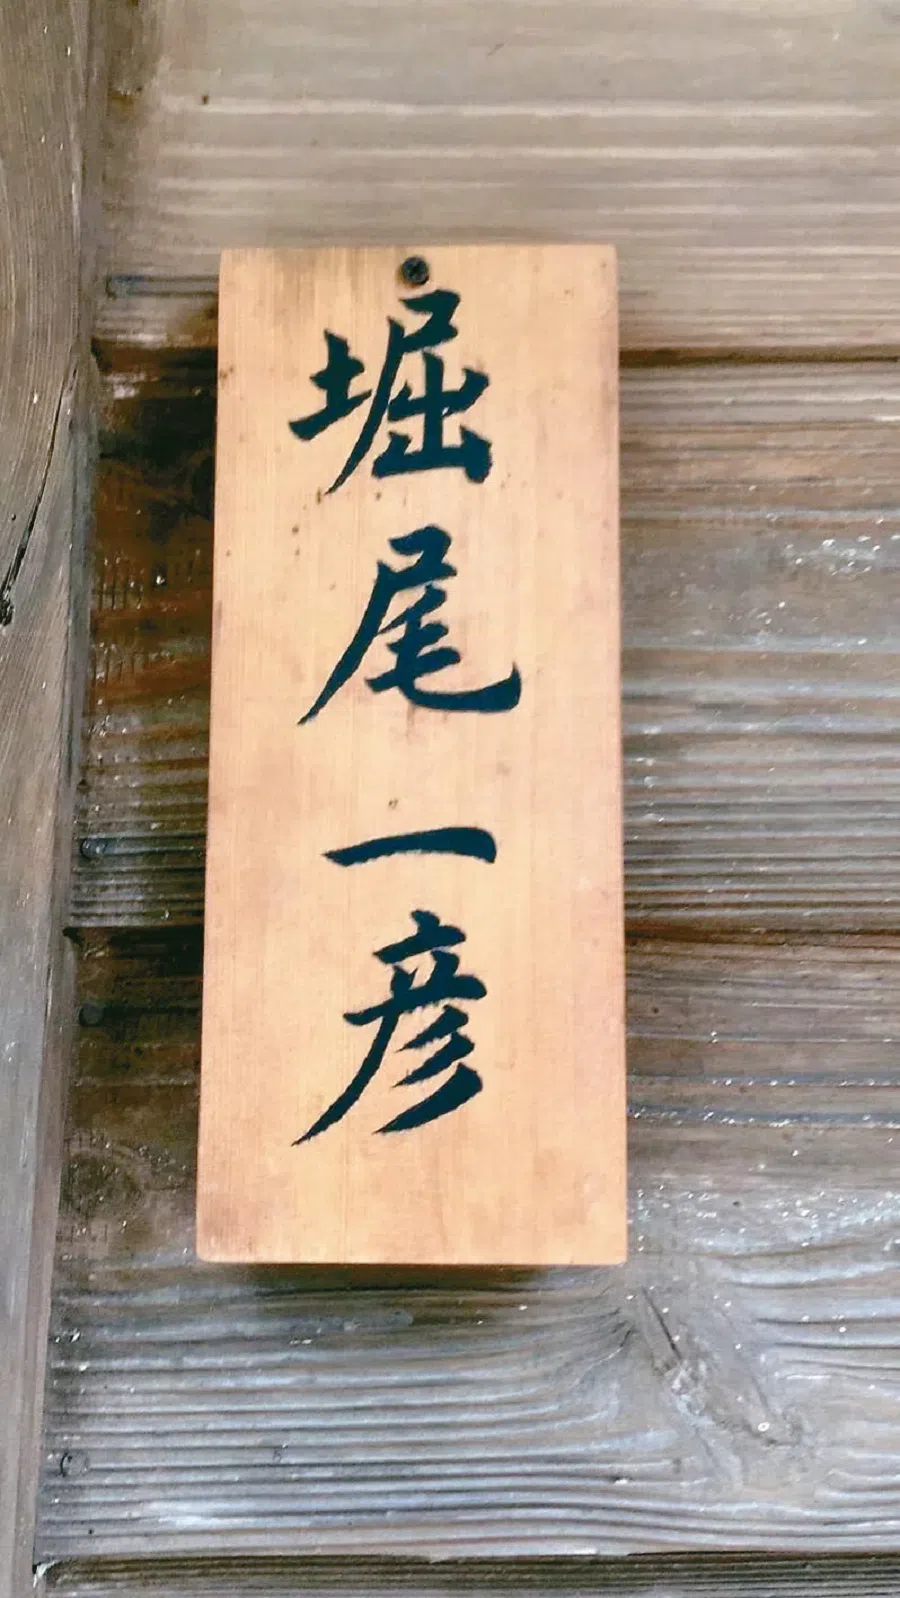 堀尾一彦